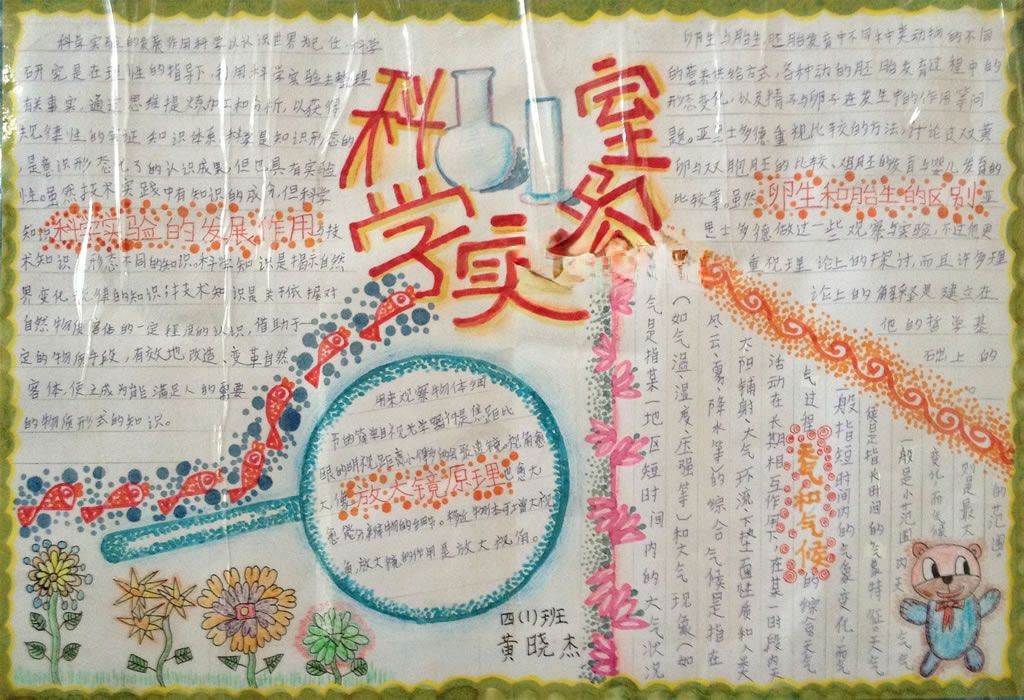 科学实验室
科学实验的发展作用科学以认识世界为己任,科学
研究是在理性的指导下,利用科学实验去整理
有关事实,通过思维提炼加工和分析,以获得
规律性的实证知识体系科学是知识形态的
是意识形态化了的认识成果,但也具有实验
性。虽然技术实践中有知识的成分,但科学
知识
科学实验的发展作用
与技
术知识形态不同的知识。科学知识是揭示自然
界变化规律的知识
技术知识是关于依据对
自然物质
的一定程度的认识,借助于一
定的物质手段,有效地改造、变革自然
客体,使之成为能满足人的需要
的物质形式的知识。
卵生与胎生胚胎发育中不同种类动物的不同
的营养供给方式,各种动物胚胎发育过程中的
形态变化,以及精子与卵子在发生中的作用等问
题。亚里士多德重视比较的方法,讨论过双黄
卵与双胞胎胚的比较、鸡胚的发育与婴儿发育的
比较等。虽然
卵生和胎生的区别
亚
里士多德做过一些观察与实验,不过他更
重视理论上的探讨,而且许多理
论上的解释是建立在
他的哲学基
础上的
用来观察物体细
节的简单目视光学器件是焦距比
眼的明视距离小得多的会聚透镜。
放大镜原理
角,放大镜的作用是放大视角。
气是指某一地区短时间内的大气状况
(如气温、湿度、压强等)和大气现象(如
风、云、雾、降水等)的综合气候是指在
太阳辐射、大气环流、下垫面性质和人类
活动在长期相互作用下,在某一时段内
气过程
的综合天气
天气和气候
一般指短时间内的气象变化,而气
候是指长时间的气象特征。天气
一般是小范围内天气
变化而气候
则是最大
的范围。
四(1)班
黄晓杰